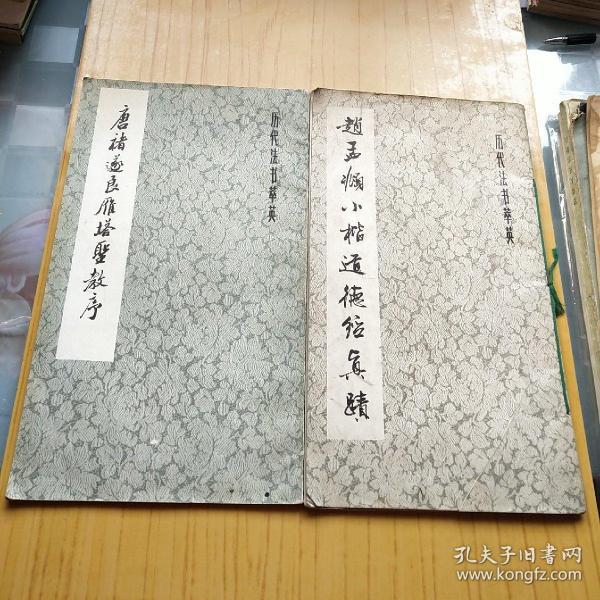 唐褚遂良雁塔聖教序
历代法书萃英
趙孟頫小楷道德經真蹟
历代法书萃英
孔夫子旧書网
www.kongfz.com